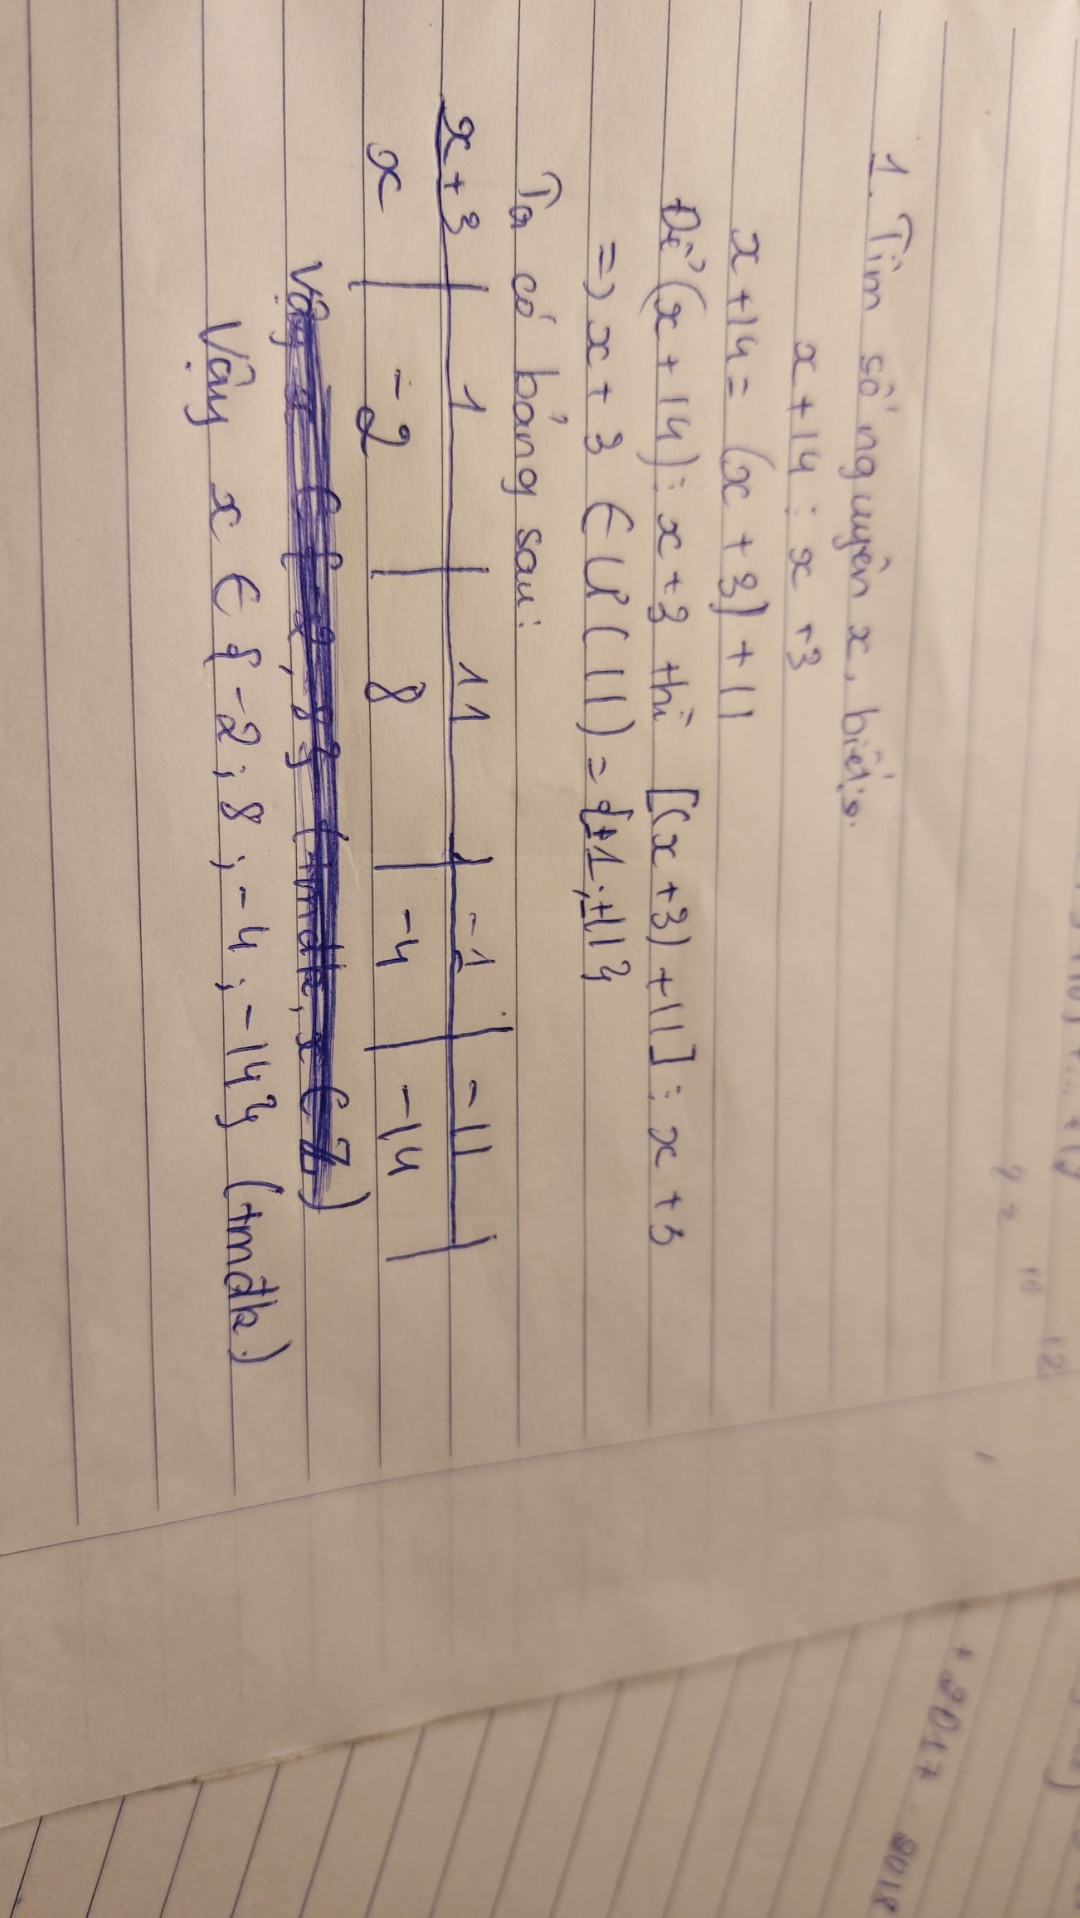 1. Tìm số nguyên x, biết:
x + 14 ⋮ x + 3
x + 14 = (x + 3) + 11
Để (x + 14) ⋮ x + 3 thì [(x + 3) + 11] ⋮ x + 3
=> x + 3 ∈ Ư(11) = {±1; ±11}
Ta có bảng sau:
x + 3 | 1 | 11 | -1 | -11 |
x | -2 | 8 | -4 | -14 |
Vậy x ∈ {-2; 8; -4; -14} (tmđk)
+ 2017. 2018